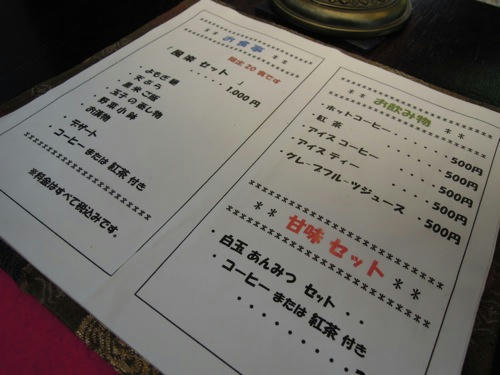 ** お食事 **
温楽 セット 限定 20 食です
・・・・・ 1,000 円
・よもぎ麺
・天ぷら
・者米ご飯
・玉子の蒸し物
・野菜小鉢
・お漬物
・デザート
・コーヒー または 紅茶 付き
※料金はすべて税込みです。
** お飲み物 **
・ホットコーヒー・・・・・500円
・紅茶・・・・・500円
・アイス コーヒー・・・・500円
・アイス ティー・・・・・500円
・グレープフルーツジュース・500円
** 甘味 セット **
・白玉 あんみつ セット・・
・コーヒー または 紅茶 付き